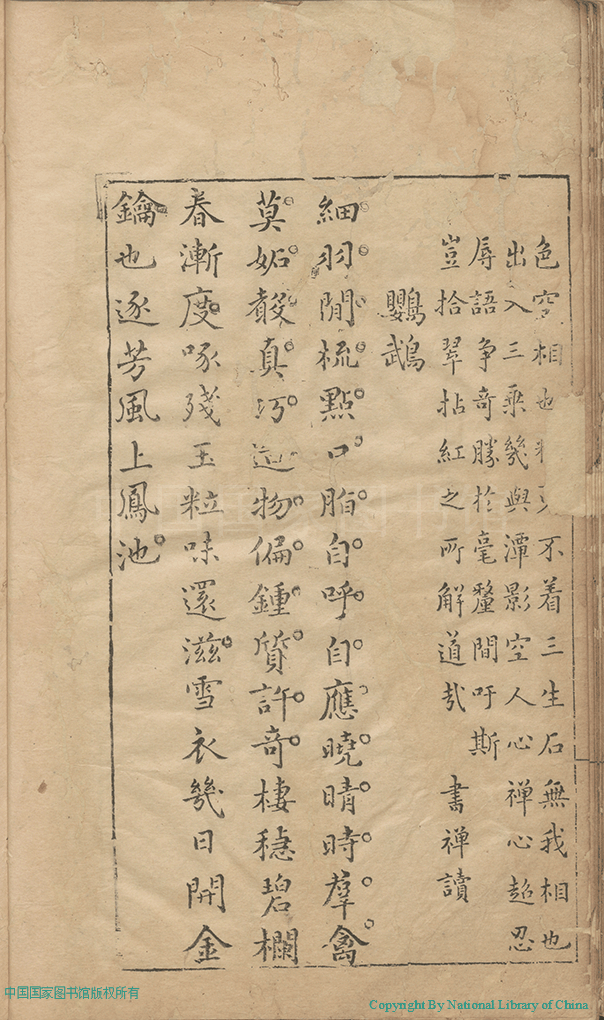 色空相也不着三生石無我相也
出入三乘幾與潭影空人心禪心超忍
辱語争奇勝於毫釐間吁斯
豈拾翠拈紅之所解道哉　書禪讀
鸚鵡
細羽閒梳點口脂自呼自應曉晴時羣禽
莫妬真巧造物偏鍾質許奇棲穩碧欄
春漸度啄殘玉粒味還滋雪衣幾日開金
鑰也逐芳風上鳳池
中国国家图书馆版权所有
Copyright By National Library of China